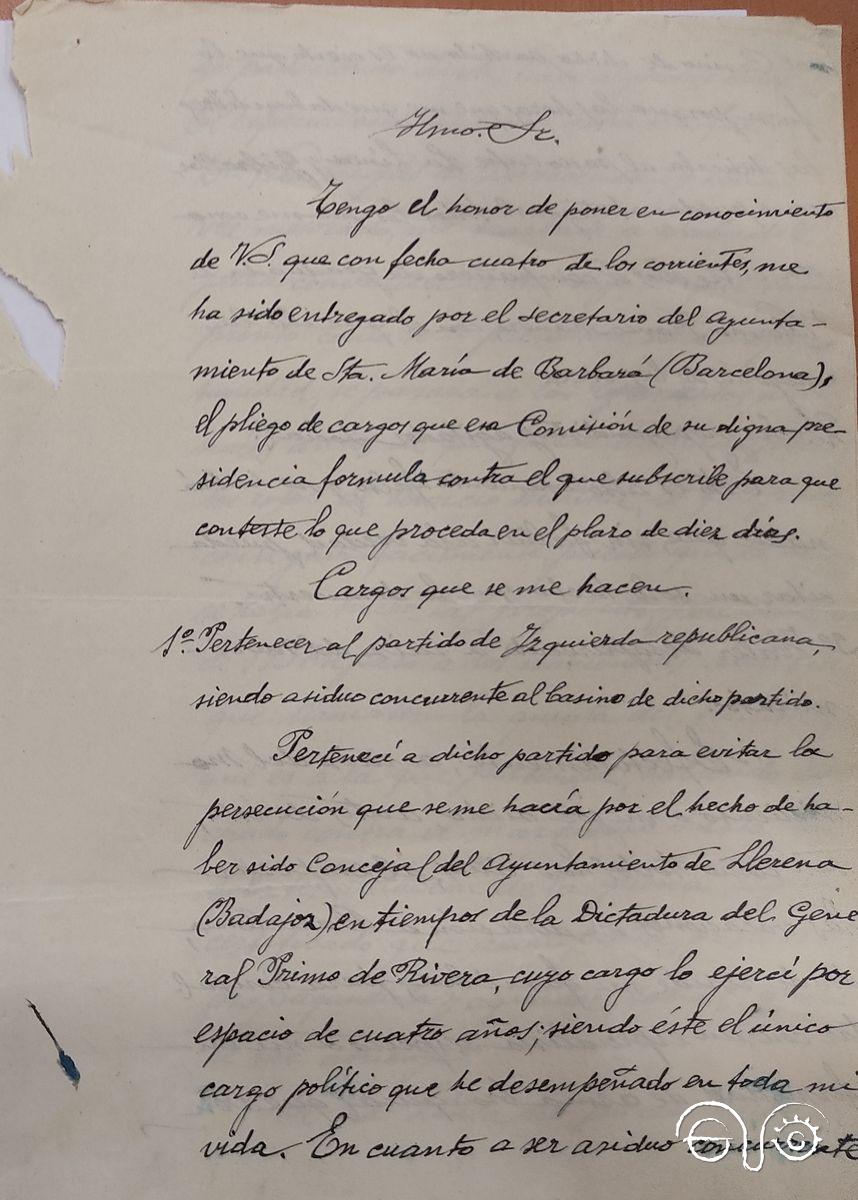 Ilmo. Sr.
Tengo el honor de poner en conocimiento
de V.S. que con fecha cuatro de los corrientes, me
ha sido entregado por el secretario del ayunta-
miento de Sta. María de Barbará (Barcelona),
el pliego de cargos que esa Comisión de su digna pre-
sidencia formula contra el que subscribe para que
conteste lo que proceda en el plazo de diez días.
Cargos que se me hacen.
1º. Pertenecer al partido de Izquierda republicana,
siendo asiduo concurrente al Casino de dicho partido.
Pertenecí a dicho partido para evitar la
persecución que se me hacía por el hecho de ha-
ber sido Concejal del Ayuntamiento de Llerena
(Badajoz) en tiempos de la Dictadura del Gene
ral Primo de Rivera, cuyo cargo lo ejercí por
espacio de cuatro años; siendo éste el único
cargo político que he desempeñado en toda mi
vida. En cuanto a ser asiduo concurrente